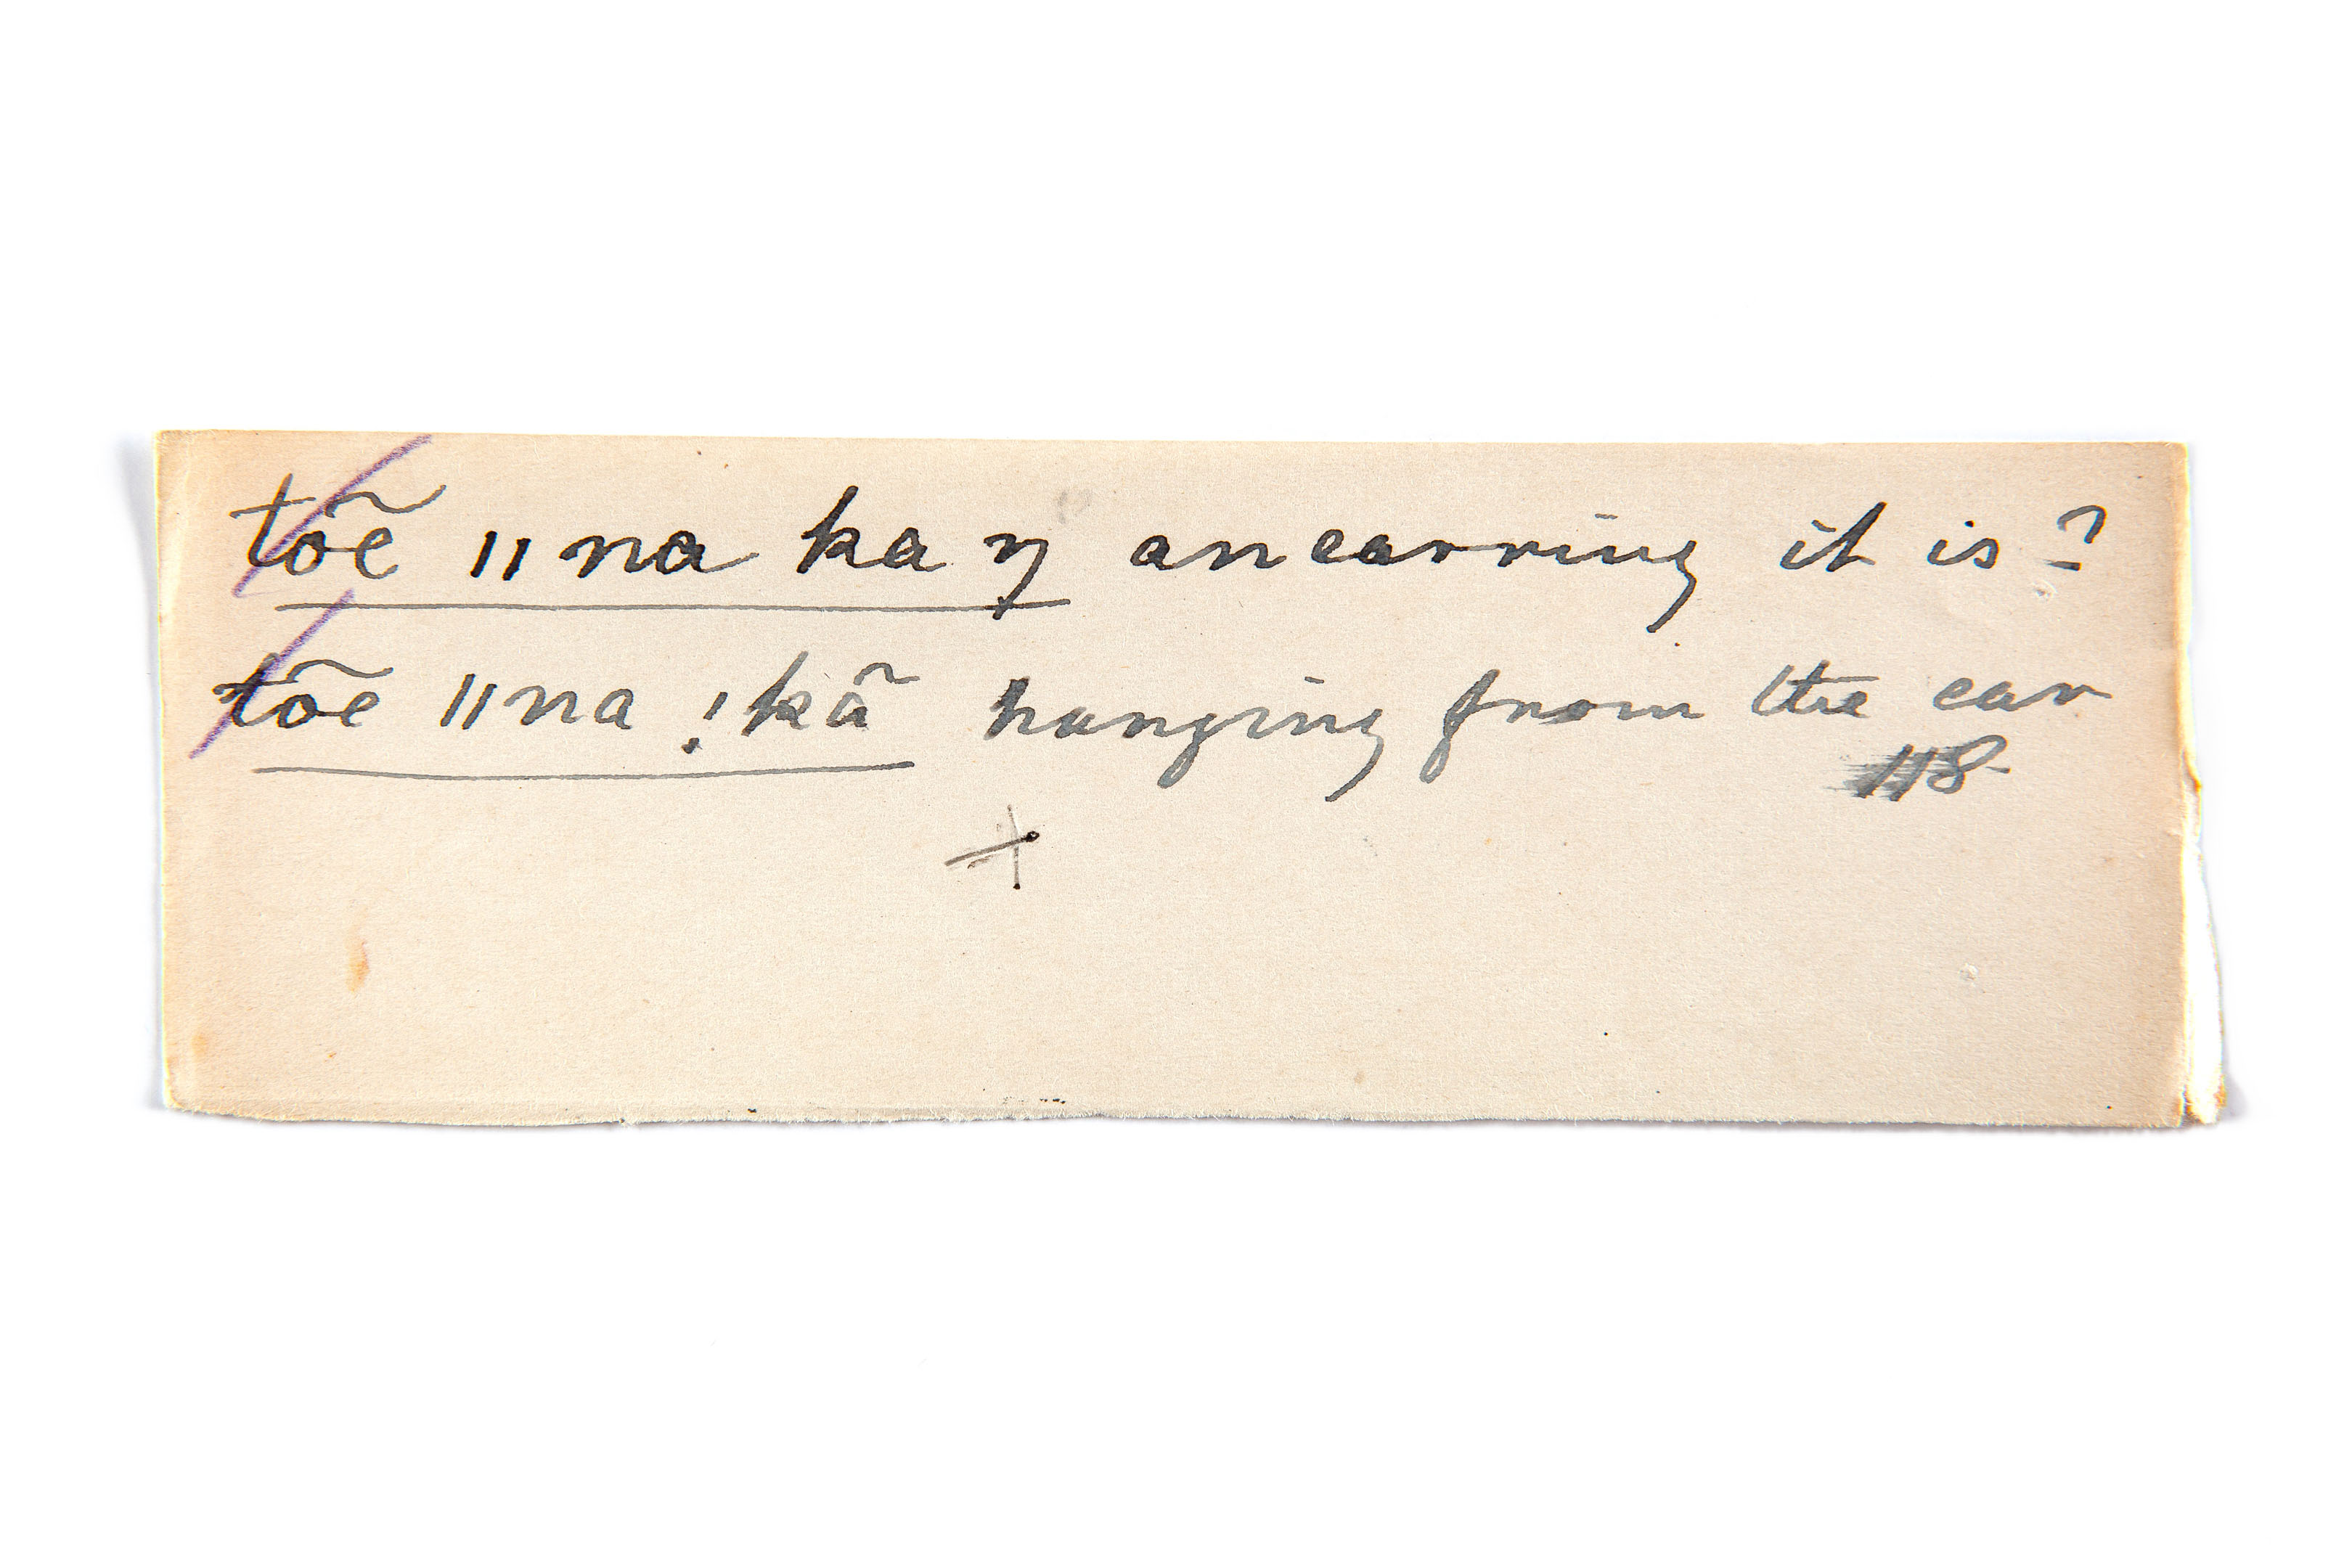 tõe ǁna ka ŋ an earring it is?
tõe ǁna !kã hanging from the ear
118
+